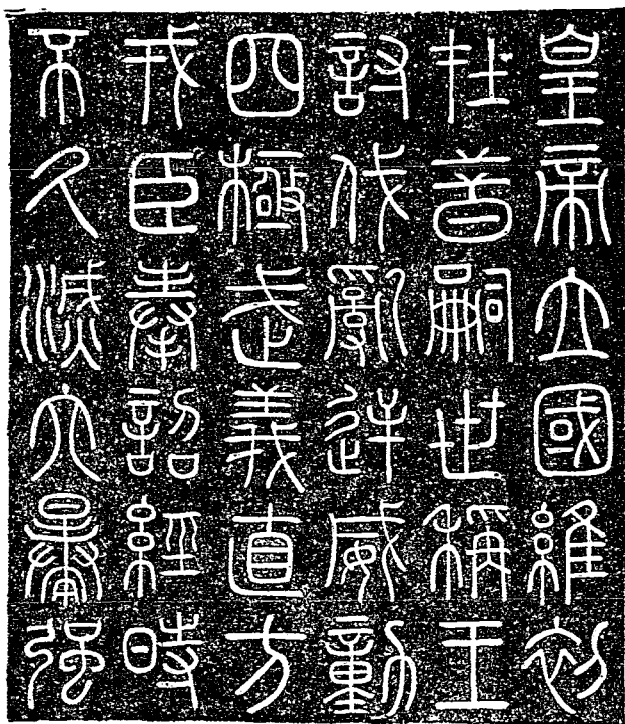 皇帝立國維初
在昔嗣世稱王
討伐亂逆威動
四極武義直方
戎臣奉詔經時
不久滅六暴強